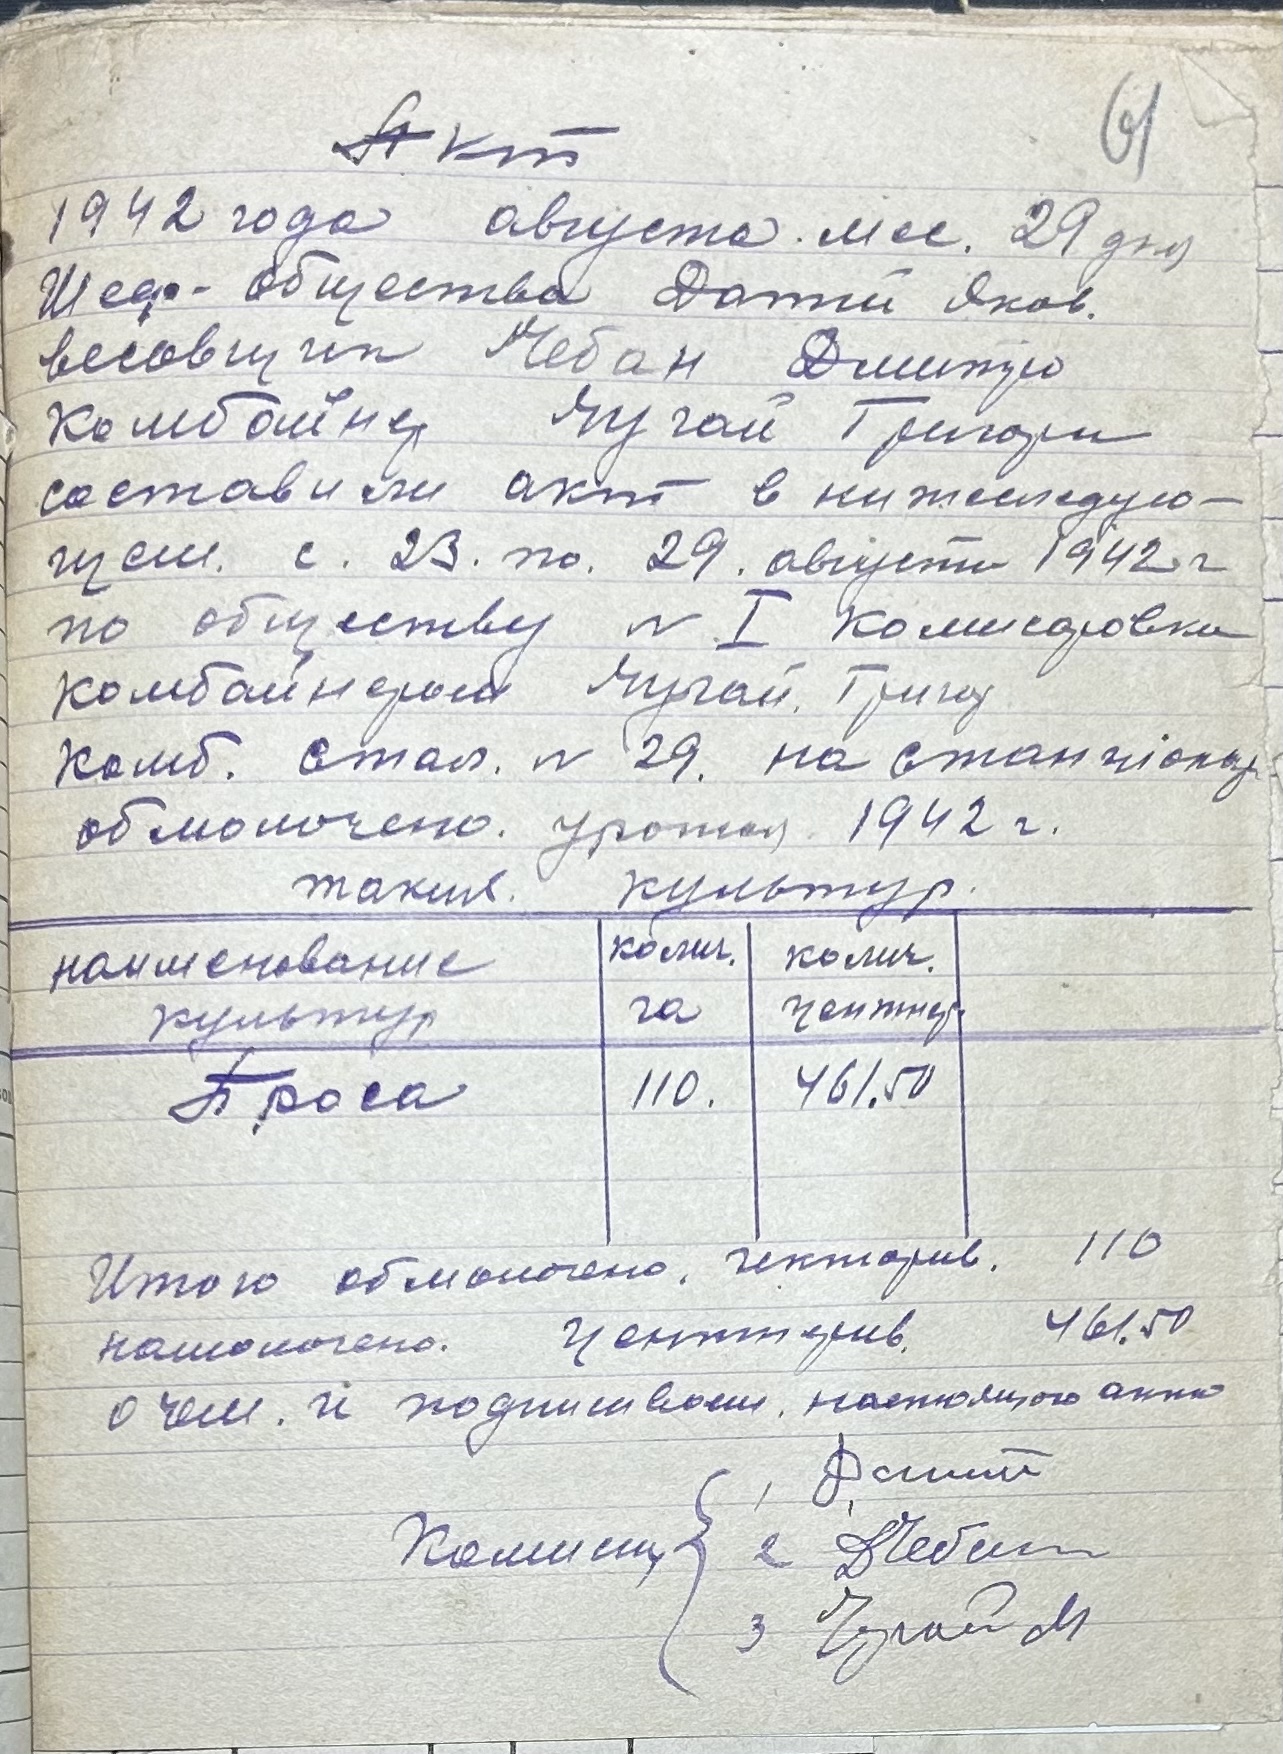 61
Акт
1942 года августа мес. 29 дня
Шеф- общества Дотий Яков.
весовщик Чебан Дмитро
Комбайнер Чугай Григори
составили акт в нижеследую-
щем. с. 23. по. 29. августа 1942 г
по обществу № I Комисаровки
Комбайнером Чугай. Григор
Комб. Стал. № 29. на станціонар
обмолочено. урожая 1942 г.
таких. культур.
наименование колич. колич.
культур га центнер.
Проса 110. 461.50
Итого обмолочено. гектарив. 110
намолочено. центнерив. 461.50
о чем. и подписваем. настоящого акта
1
Комисия 2 ДЧебан
3 Чугай